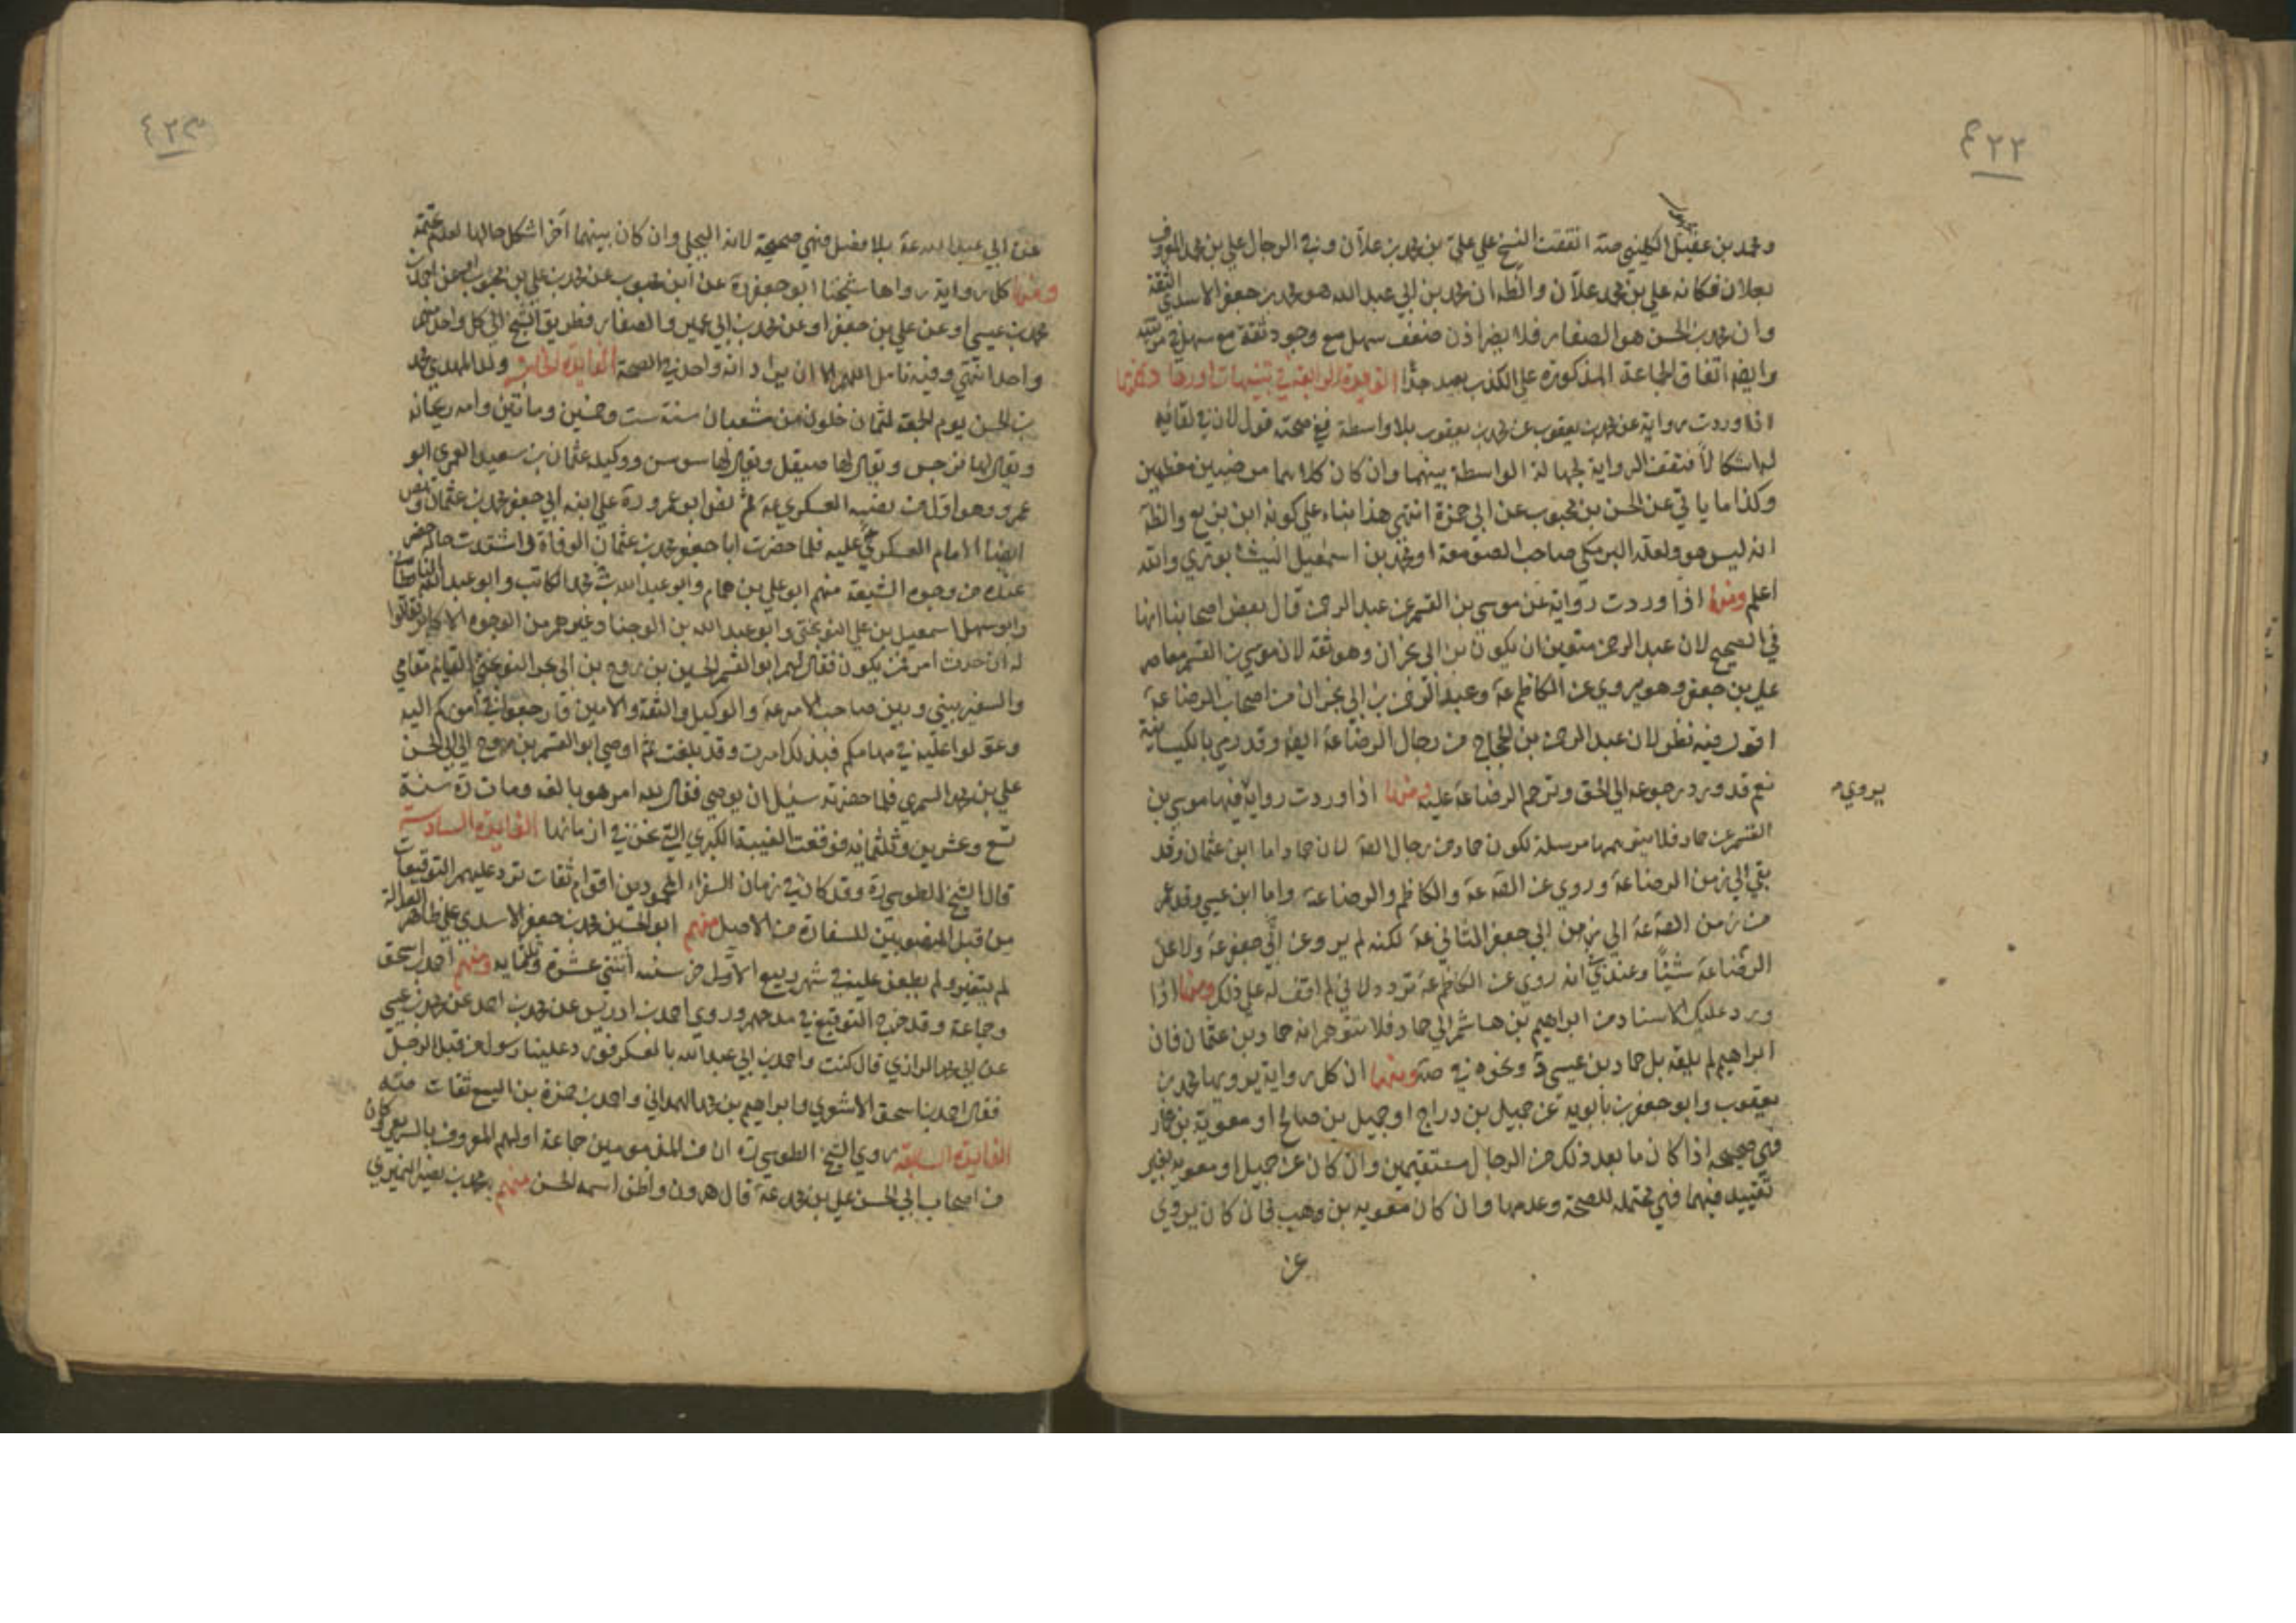 ٤٢٢
ومحمد بن عقيل الكليني صه اتفقت النسخ على علي بن محمد بن علان وفي الرجال علي بن محمد المعروف
بعلان فكانه علي بن محمد علان والظ ان محمد بن ابي عبد الله هو محمد بن جعفر الاسدي الثقة
وان محمد بن الحسن هو الصفار فلا يضر اذن ضعف سهل مع وجود ثقة مع سهل في مرتبته
وايضا اتفاق الجماعة المذكورة على الكذب بعيد جدا الفايدة الرابعة في تنبيهات اوردها
اذا وردت رواية عن محمد بن يعقوب عن محمد بن بلا واسطة ففي صحته قول لان في لقائه
له اشكالا فتقف الرواية لجهالة الواسطة بينهما وان كان كلاهما مرضيين معظمين
وكذا ما ياتي عن الحسن بن محبوب عن ابي حمزة انتهى هذا بناء على كونه ابن بزيع والظ
انه ليس هو ولعله البرمكي صاحب الصومعة او محمد بن اسمعيل النيشابوري والله
اعلم ومنها اذا وردت رواية عن موسى بن القسم عن عبد الرحمن قال بعض اصحابنا انها
في الصحيح لان عبد الرحمن متعين ان يكون بن ابي نجران وهو ثقة لان موسى بن القسم معاصر
علي بن جعفر وهو يروي عن الكاظم عة وعبد الرحمن بن ابي نجران من اصحاب الرضا عة
اقول فيه نظر لان عبد الرحمن بن الحجاج من رجال الرضا عة ايض وقد رمي بالكيسانية
نعم قد ورد رجوعه الى الحق وترحم الرضا عة عليه ومنها اذا وردت رواية فيها موسى بن
يروي
القسم عن حماد فلا يتوهمها مرسلة لكون حماد من رجال الصة لان حماد اما ابن عثمان وقد
بقي الى زمن الرضا عة وروى عن الصة عة والكاظم والرضا عة واما ابن عيسى وقد
من زمن الصة عة الى زمن ابي جعفر الثاني عة لكنه لم يرو عن ابي جعفر عة ولا عن
الرضا عة شيئا وعندي انه روى عن الكاظم عة تردد لاني لم اقف له على ذلك ومنها اذا
ورد عليك الاسناد من ابراهيم بن هاشم الى حماد فلا تتوهم انه حماد بن عثمان فان
ابراهيم لم يلقه بل حماد بن عيسى ونحوه في صه ومنها ان كل رواية يرويها محمد بن
يعقوب وابو جعفر بن بابويه عن جميل بن دراج او جميل بن صالح او معوية بن عمار
فهي صحيحه اذا كان ما بعد ذلك من الرجال مستقيمين وان كان عن جميل او معويه بغير
تقييد فيهما فهي محتمله للصحة وعدمها وان كان معويه بن وهب فان كان يروي
عن
٤٢٣
عن ابي عبد الله عة بلا فصل فهي صحيحة لانه البجلي وان كان بينهما آخر اشكل حالها لعدم
ومنها كل رواية رواها شيخنا ابو جعفر رة عن ابن محبوب عن محمد بن علي بن محبوب او عن احمد بن
محمد بن عيسى او عن علي بن جعفر او عن محمد بن ابي عمير والصفار فطريق الشيخ الى كل واحد منهم
واحد انتهى وفيه تامل اللهم الا ان يراد انه واحد في الصحة الفايدة الخامسة ولد المهدي محمد
بن الحسن يوم الجمعة لثمان خلون من شعبان سنة ست وخمسين ومائتين وامه ريحانه
ويقال لها نرجس ويقال لها صيقل ويقال لها سوسن ووكيله عثمان بن سعيد العمري ابو
عمرو وهو اول من نصبه العسكري عة ثم نص ابو عمرو رة على ابنه ابي جعفر محمد بن عثمان ونص
ايضا الامام العسكري ع عليه فلما حضرت ابا جعفر محمد بن عثمان الوفاة واشتدت حاله حضر
عنده من وجوه الشيعة منهم ابو علي بن همام وابو عبد الله بن محمد الكاتب وابو عبد الله الباقطاني
وابو سهل اسمعيل بن علي النوبختي وابو عبد الله بن الوجنا وغيرهم من الوجوه الاكابر فقالوا
له ان حدث امر فمن يكون فقال لهم ابو القسم الحسين بن روح بن ابي بحر النوبختي القايم مقامي
والسفير بيني وبين صاحب الامر عة والوكيل والثقة والامين فارجعوا في اموركم اليه
وعولوا عليه في مهامكم فبذلك امرت وقد بلغت ثم اوصى ابو القسم بن روح الى ابي الحسن
علي بن محمد السمري فلما حضرته سئل ان يوصي فقال لله امر هو بالغه ومات رة سنة
تسع وعشرين وثلثمايه فوقعت الغيبة الكبرى التي نحن في ازمانها الفايدة السادسة
قال الشيخ الطوسي رة وقد كان في زمان السفراء المحمودين اقوام ثقات ترد عليهم التوقيعات
من قبل المنصوبين للسفارة من الاصل منهم ابو الحسين محمد بن جعفر الاسدي على ظاهر العدالة
لم يتغير ولم يطعن عليه في شهر ربيع الاول من سنه اثنتي عشرة وثلثمايه ومنهم احمد بن اسحق
وجماعة وقد خرج التوقيع في مدحهم وروى احمد بن ادريس عن محمد بن احمد عن محمد بن عيسى
عن ابي محمد الرازي قال كنت واحمد بن ابي عبد الله بالعسكر فورد علينا رسول من قبل الرجل
فقال احمد بن اسحق الاشعري وابراهيم بن محمد الهمداني واحمد بن حمزة بن اليسع ثقات
الفايدة السابعة روى الشيخ الطوسي رة ان من المذمومين جماعة اولهم المعروف بالسريعي وكان
من اصحاب ابي الحسن علي بن محمد عة قال هرون واظن اسمه الحسن منهم محمد بن نصير النميري